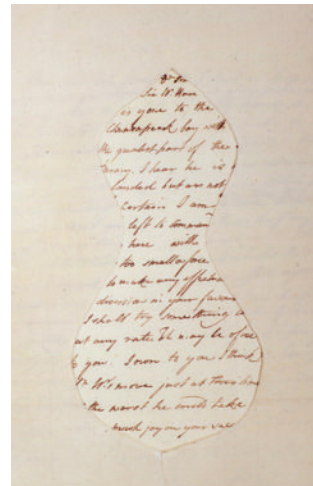 Sir W. Howe
is gone to the
Chesapeak bay with
the greatest part of the
army. I hear he is
landed but am not
certain. I am
left to command
here with
too small a force
to make any effectual
diversion in your favour
I shall try something
at any rate. It may be of use
to you. I own to you I think
Sr W's move just at this time
the worst he could take
much joy on your succ